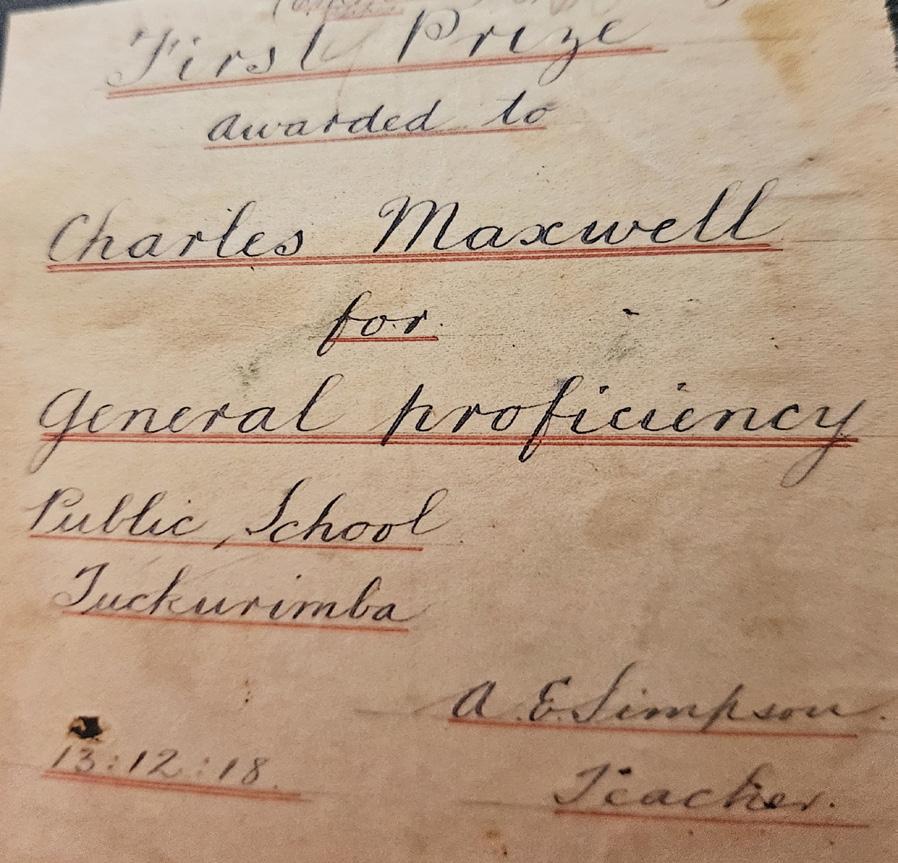 First Prize
awarded to
Charles Maxwell
for
General proficiency
Public School
Tuckurimba
A. E. Simpson.
13:12:18.
Teacher.